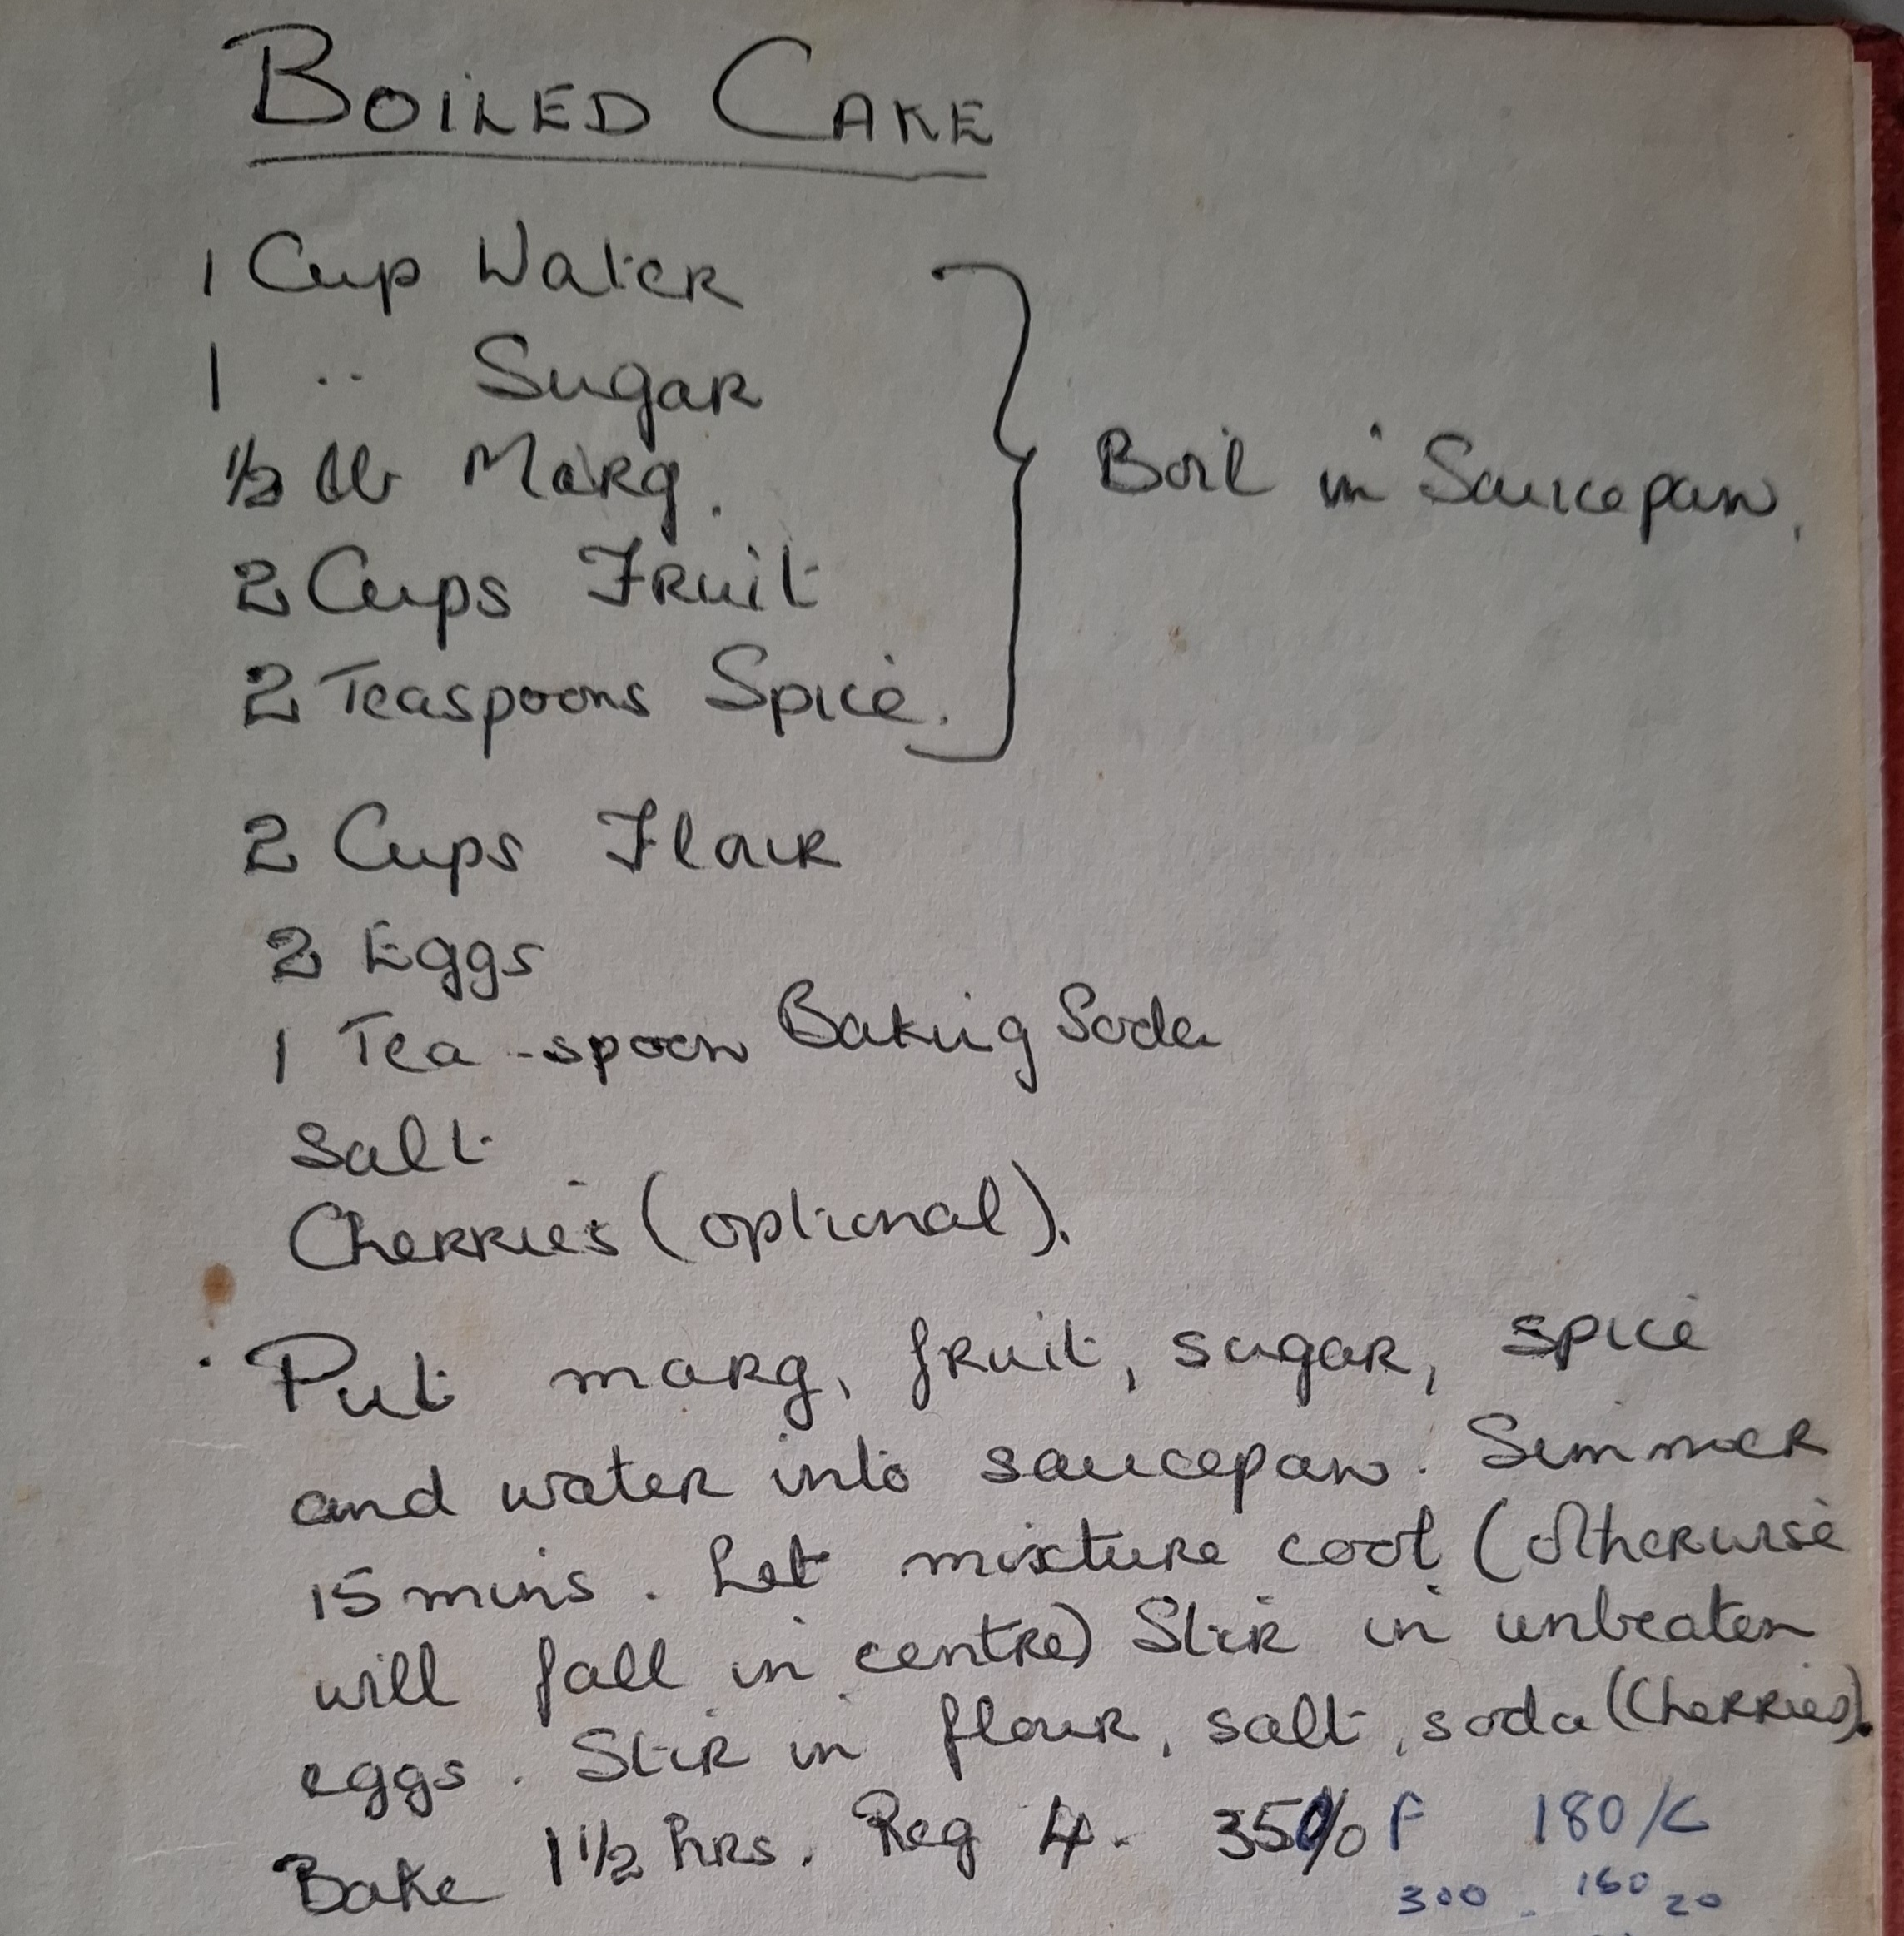 BOILED CAKE
1 Cup Water
1 .. Sugar
1/2 lb Marg.
2 Cups Fruit
2 Teaspoons Spice.
Boil in Saucepan.
2 Cups Flour
2 Eggs
1 Tea-spoon Baking Soda
Salt
Cherries (optional).
Put marg, fruit, sugar, spice
and water into saucepan. Simmer
15 mins. Let mixture cool (otherwise
will fall in centre) Stir in unbeaten
eggs. Stir in flour, salt, soda (Cherries).
Bake 1 1/2 hrs. Reg 4. 350/o F 180/C
300 - 160 20